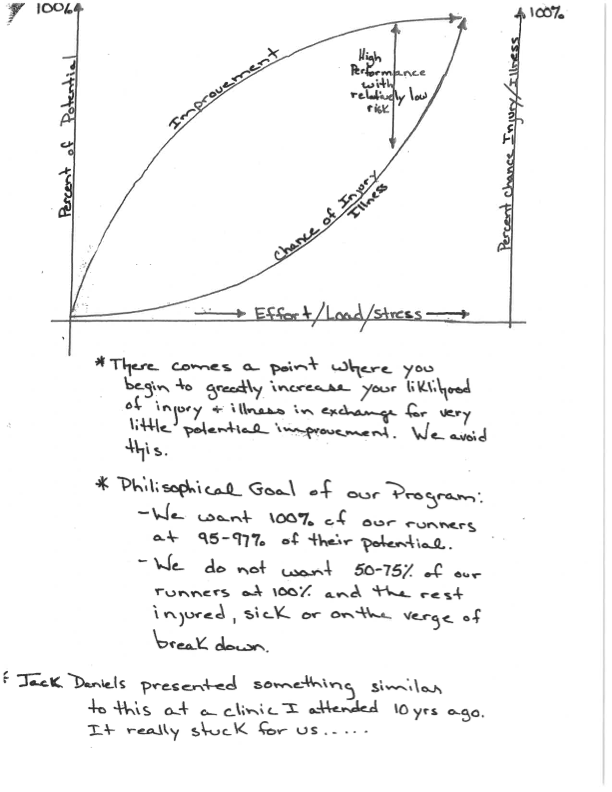 100%
100%
Percent of Potential
Improvement
High
Performance
with
relatively low
risk
Chance of Injury
Illness
Percent Chance Injury/Illness
Effort/Load/Stress
* There comes a point where you
begin to greatly increase your liklihood
of injury + illness in exchange for very
little potential improvement. We avoid
this.
* Philisophical Goal of our Program:
- We want 100% of our runners
at 95-97% of their potential.
- We do not want 50-75% of our
runners at 100% and the rest
injured, sick or on the verge of
break down.
* Jack Daniels presented something similar
to this at a clinic I attended 10 yrs ago.
It really stuck for us.....